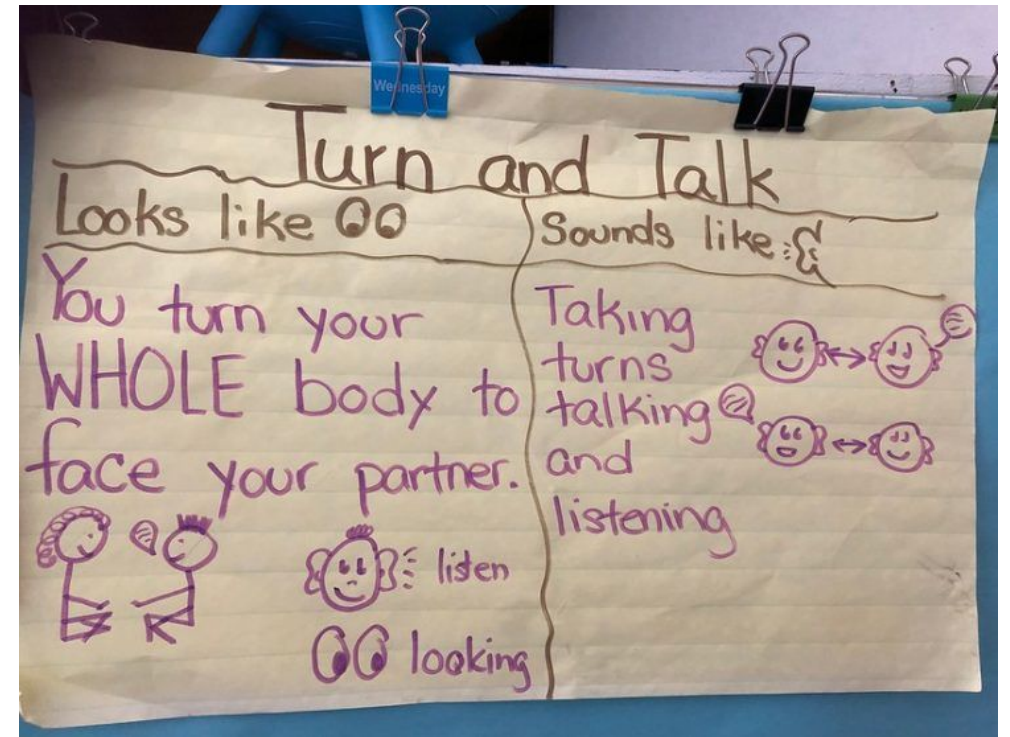 Wednesday
Turn and Talk
Looks like
You turn your
WHOLE body to
face your partner.
listen
looking
Sounds like:
Taking
turns
talking
and
listening